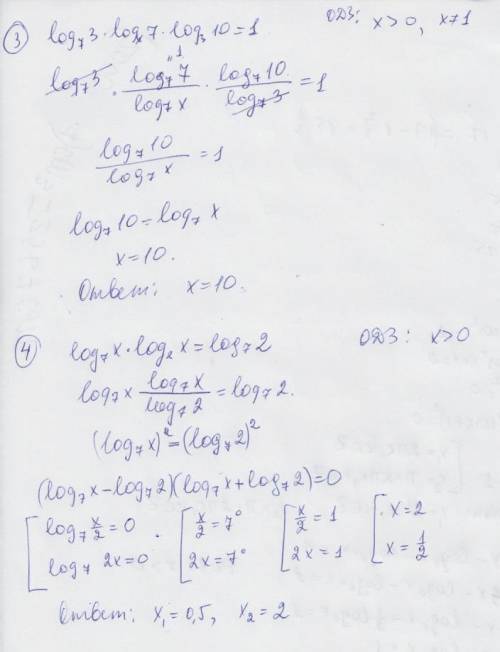 ③ log₇3 · logₓ7 · log₃10 = 1   ОДЗ: x>0, x≠1
log₇3 · log₇7/log₇x · log₇10/log₇3 = 1
log₇10/log₇x = 1
log₇10 = log₇x
x = 10.
Ответ: x = 10.
④ log₇x · log₂x = log₇2   ОДЗ: x>0
log₇x log₇x/log₇2 = log₇2.
(log₇x)² = (log₇2)²
(log₇x − log₇2)(log₇x + log₇2) = 0
[ log₇ x/2 = 0   [ x/2 = 7°   [ x/2 = 1   [ x = 2
log₇ 2x = 0   2x = 7°   2x = 1   x = 1/2
Ответ: x₁ = 0,5, x₂ = 2